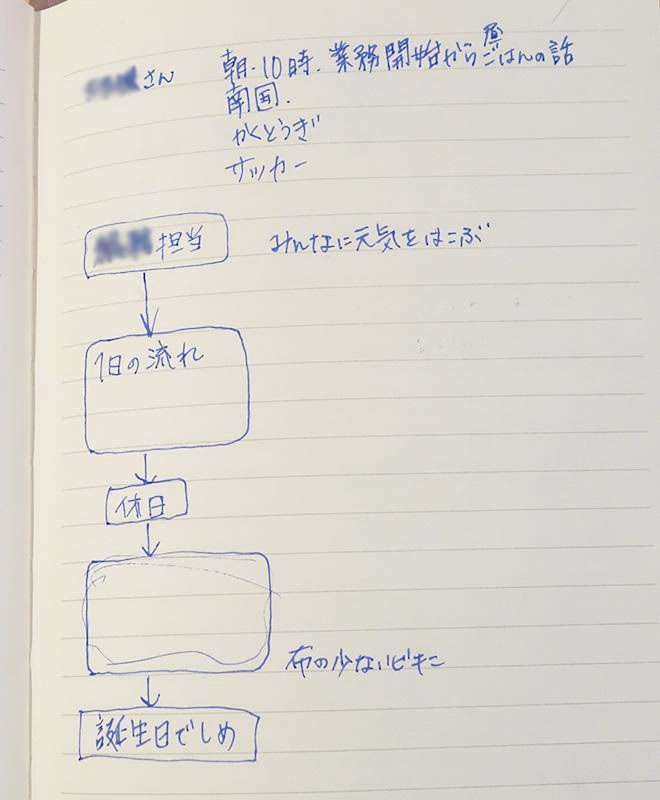 さん
朝・10時.業務開始から昼ごはんの話
南国.
かくとうぎ
サッカー
担当
みんなに元気をはこぶ
1日の流れ
休日
布の少ないビキニ
誕生日でしめ